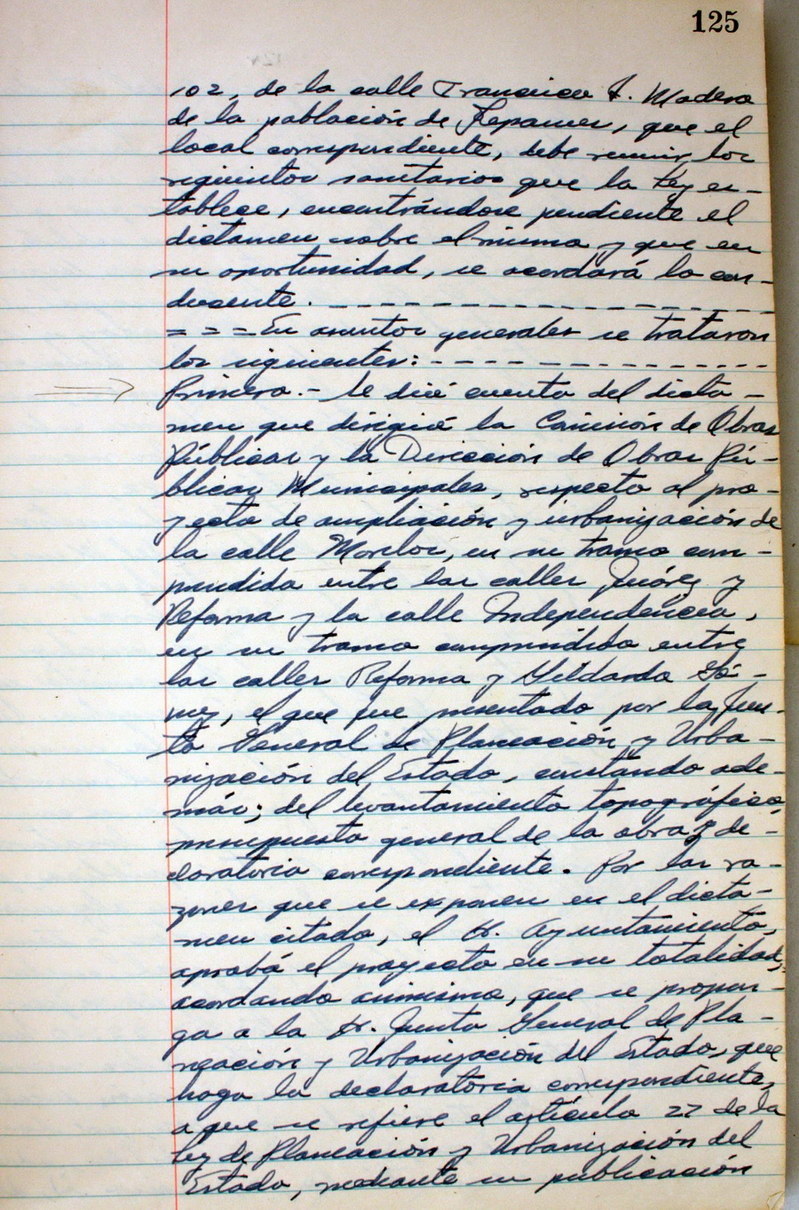 125
102, de la calle Francisco I. Madero
de la población de Tepames, que el
local correspondiente, debe reunir los
requisitos sanitarios que la Ley es-
tablece, encontrándose pendiente el
dictamen sobre el mismo y que en
su oportunidad, se acordará lo con-
ducente. - - - - - - - - - - - - - - - -
= = = En asuntos generales se trataron
los siguientes: - - - - - - - - - - - - - -
Primero.- Se dió cuenta del dicta-
men que dirigió la Comisión de Obras
Públicas y la Dirección de Obras Pú-
blicas Municipales, respecto al pro-
yecto de ampliación y urbanización de
la calle Morelos, en su tramo com-
prendido entre las calles Juárez y
Reforma y la calle Independencia,
en su tramo comprendido entre
las calles Reforma y Gildardo Gó-
mez, el que fue presentado por la Jun-
ta General de Planeación y Urba-
nización del Estado, constando ade-
más; del levantamiento topográfico,
presupuesto general de la obra y de-
claratoria correspondiente. Por las ra-
zones que se exponen en el dicta-
men citado, el H. Ayuntamiento,
aprobó el proyecto en su totalidad,
acordando asimismo, que se propon-
ga a la H. Junta General de Pla-
neación y Urbanización del Estado, que
haga la declaratoria correspondiente,
a que se refiere el artículo 27 de la
Ley de Planeación y Urbanización del
Estado, mediante su publicación